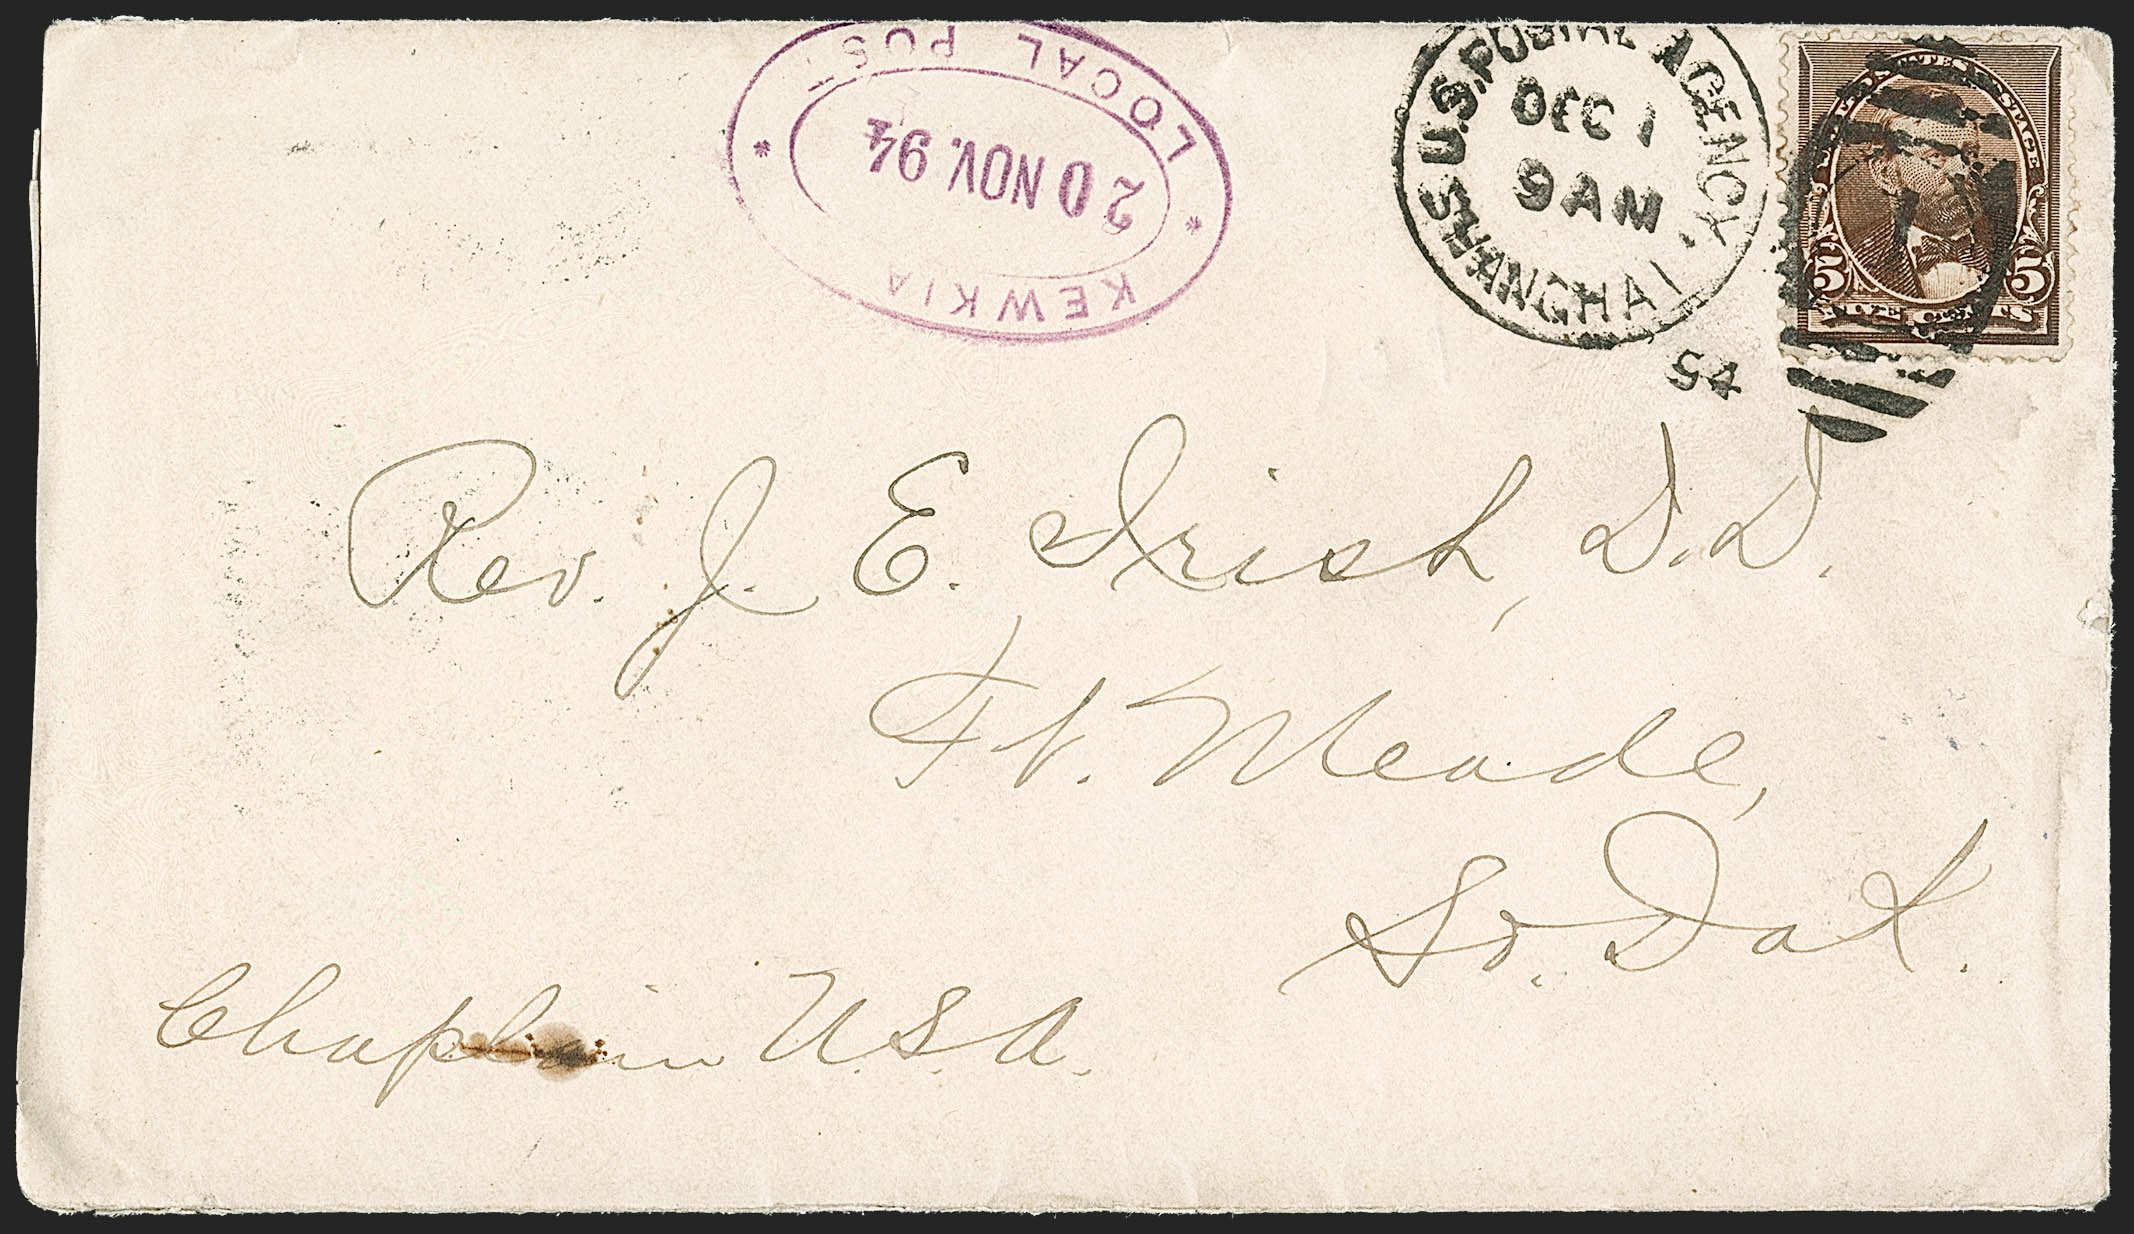 LOCAL POST
20 NOV. 94
KEWKIA
U.S. POSTAL AGENCY
DEC 1
9 AM
SHANGHAI
94
UNITED STATES POSTAGE
5 5
FIVE CENTS
Rev. J. E. Irish, D.D.
Ft. Meade,
So. Dak.
Chaplain U.S.A.